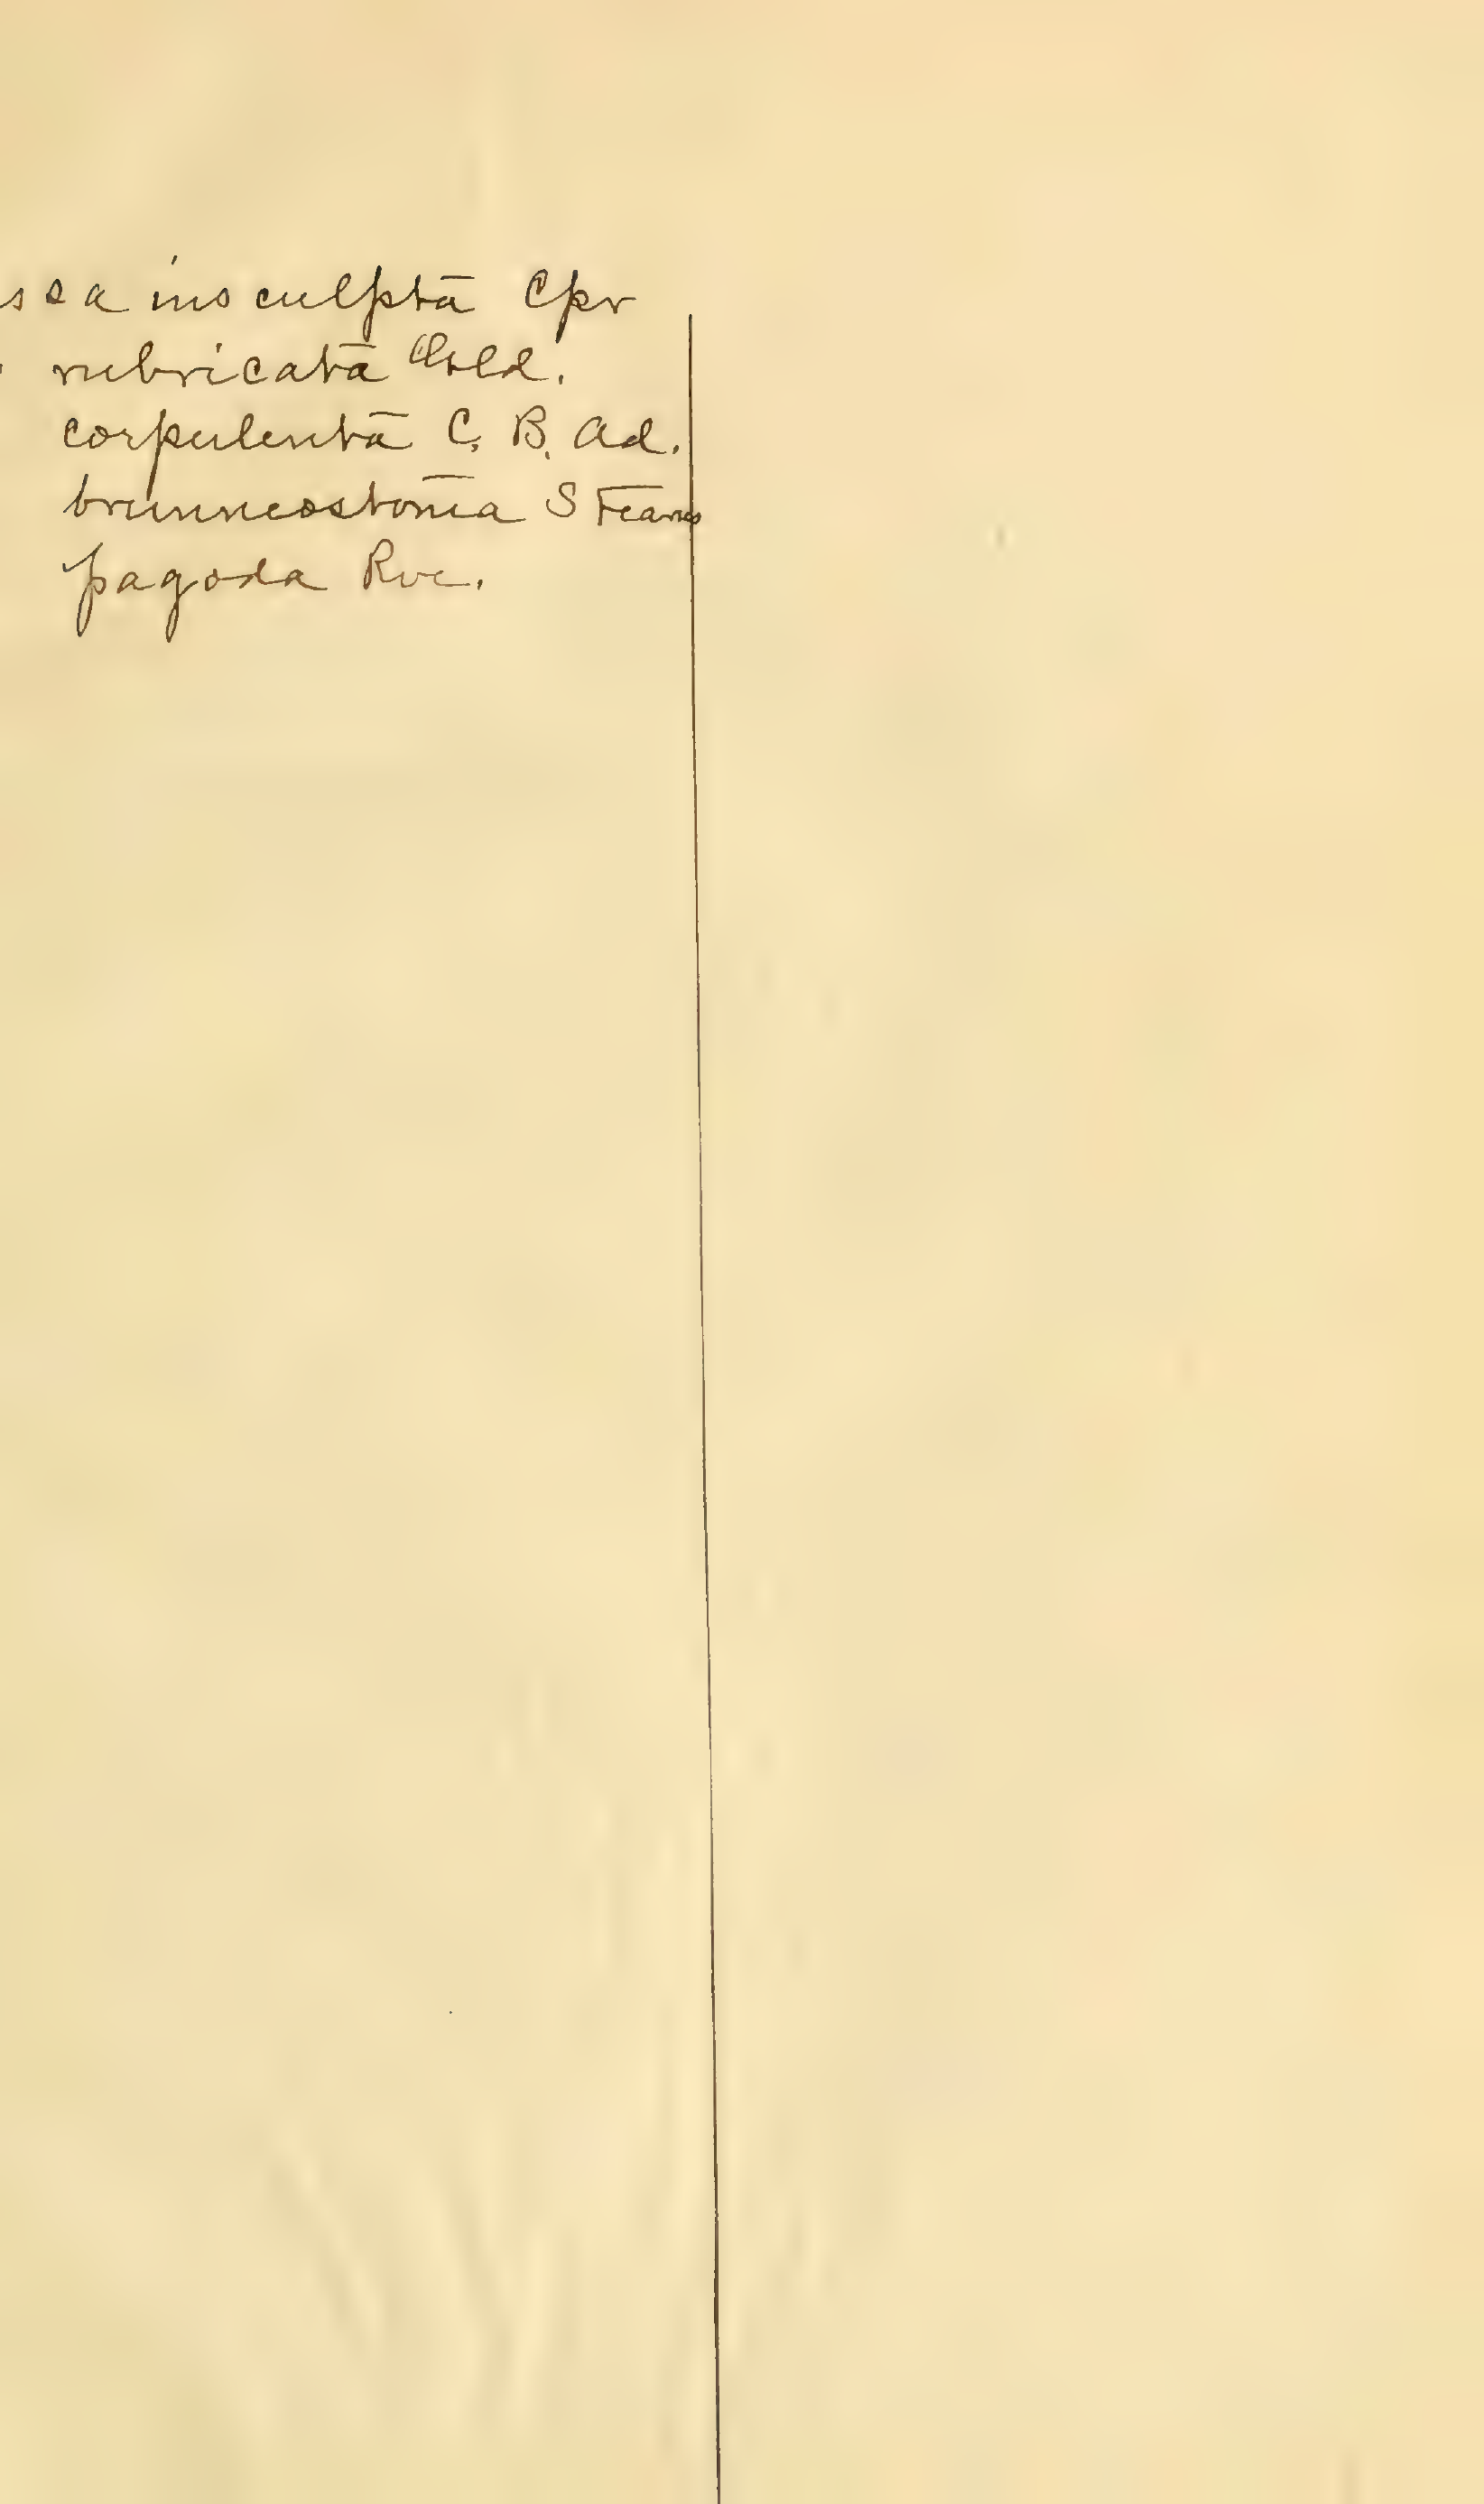 ssa insculpta Cpr
rubricata Gld.
corpulenta C. B. Ad.
brunneostoma Stearns
pagoda Rve.